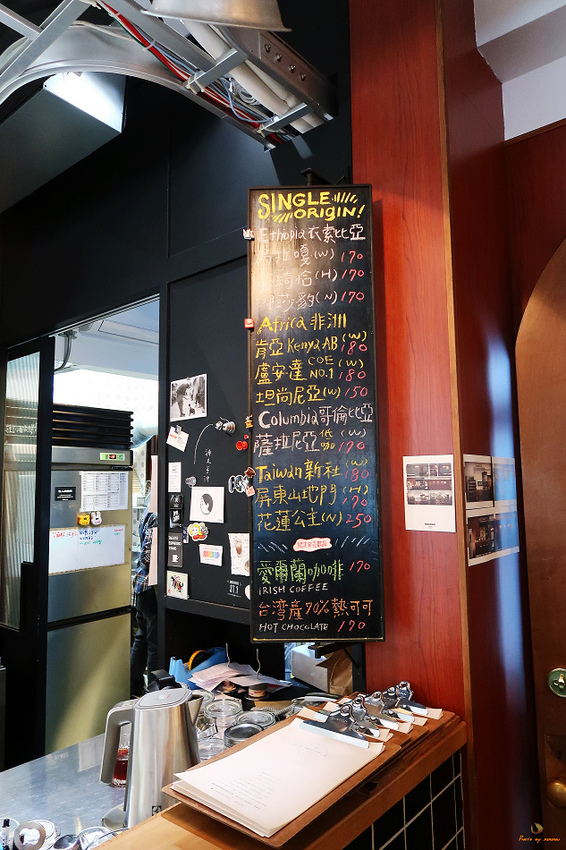 SINGLE
ORIGIN!
Ethopia衣索比亞
(W) 170
(H) 170
(N) 170
Africa 非洲
肯亞 Kenya AB (W) 180
盧安達 COE NO.1 (W) 180
坦尚尼亞(W) 150
Columbia哥倫比亞
薩拉尼亞 低咖 (W) 170
Taiwan新社(W) 180
屏東山地門(H) 170
花蓮公主(N) 250
愛爾蘭咖啡 170
IRISH COFFEE
台湾産70%熱可可
HOT CHOCLATE 170